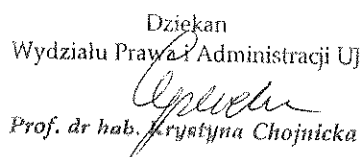 Dziekan
Wydziału Prawa i Administracji UJ
Prof. dr hab. Krystyna Chojnicka